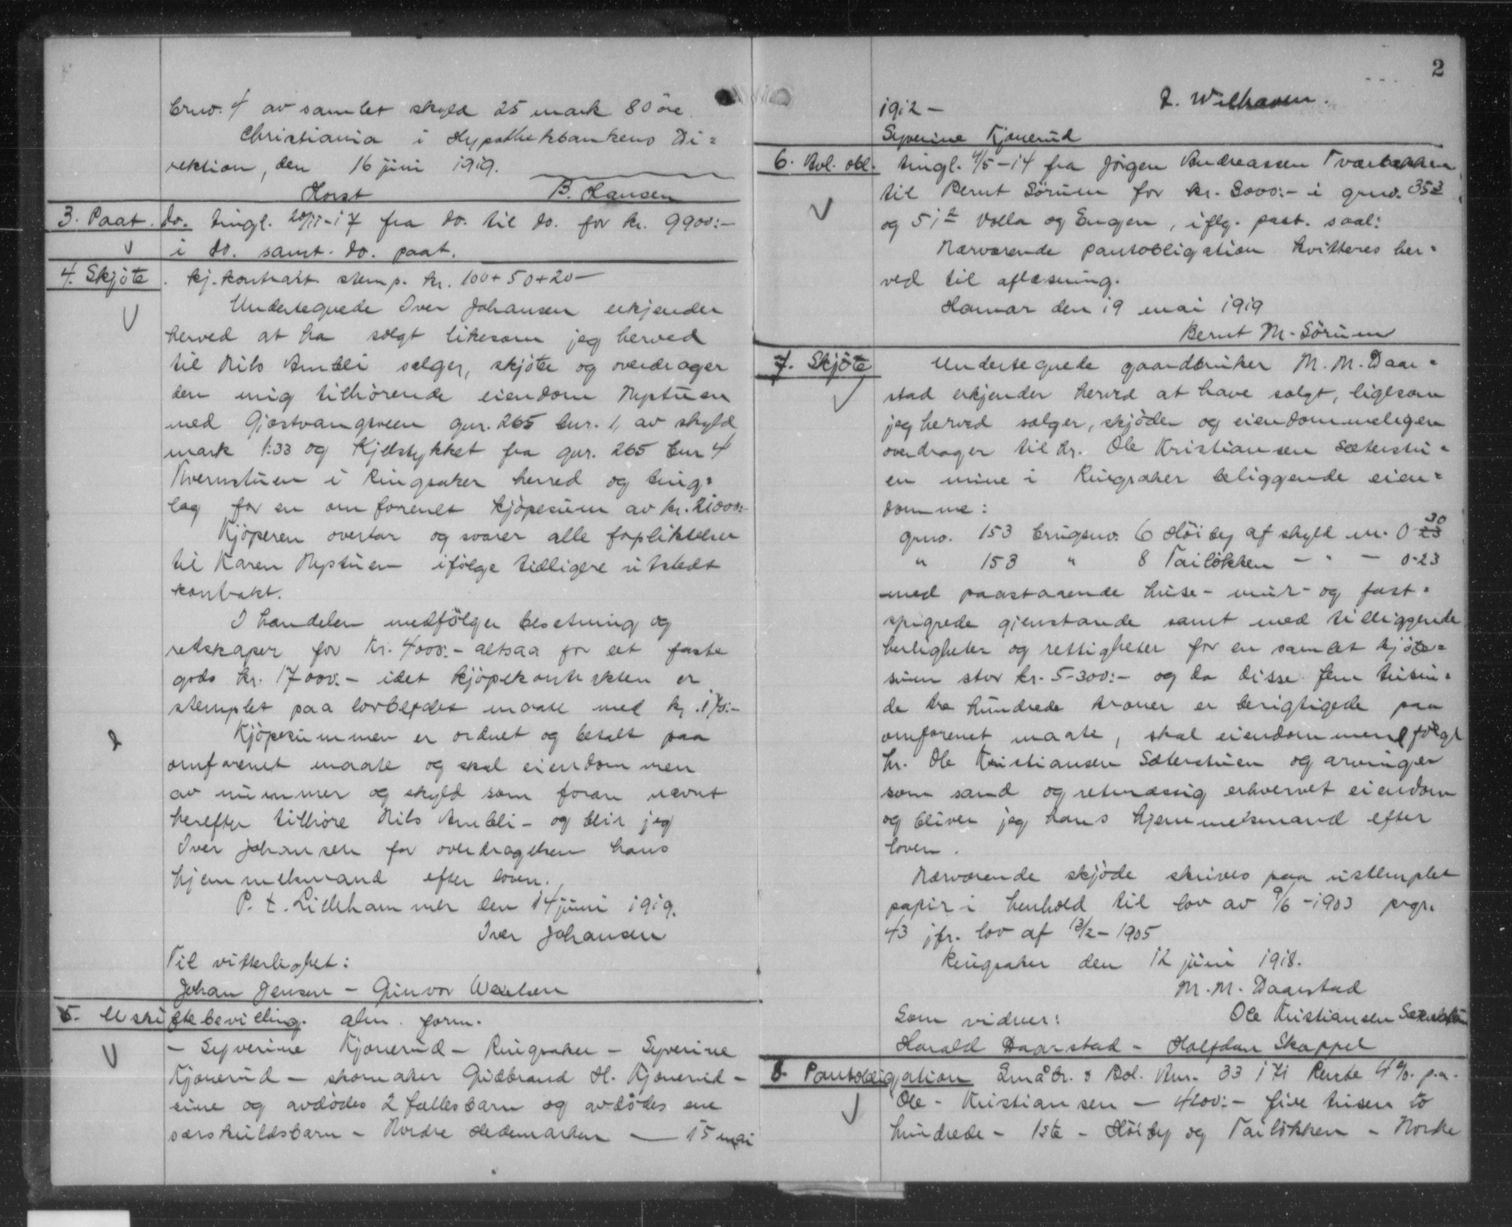 brno. 4 av samlet skyld 25 mark 80 øre.
Christiania i Hypothekbankens Di-
rektion, den 16 juni 1919.
Horst B. Hansen
3. Paat. do. tingl. 20/11-17 fra do. til do. for kr. 9900:-
i do. samt. do. paat.
4. Skjöte. kj. kontrakt stemp. kr. 100 + 50 + 20 -
Undertegnede Iver Johansen erkjender
herved at ha solgt likesom jeg herved
til Nils Ambli selger, skjöte og overdrager
den mig tilhörende eiendom Nystuen
med Gjöstvangroeen gnr. 265 bnr. 1, av skyld
mark 1.33 og Kjelstykket fra gnr. 265 bnr 4
Kvernstuen i Ringsaker herred og ting-
lag for en omforenet kjöpesum av kr. 21000:-
Kjöperen overtar og svarer alle forpliktelser
til Karen Nystuen ifölge tidligere utstedt
kontrakt.
I handelen medfölger besetning og
redskaper for kr. 4000.- altsaa for det faste
gods kr. 17000.- idet kjöpekontrakten er
stemplet paa lovbefalet maate med kr. 170:-
Kjöpesummen er ordnet og betalt paa
omforenet maate og skal eiendommen
av nummer og skyld som foran nævnt
herefter tilhöre Nils Ambli - og blir jeg
Iver Johansen for overdragelsen hans
hjemmelsmand efter loven.
P. t. Lillehammer den 14 juni 1919.
Iver Johansen
Til vitterlighet:
Johan Jensen - Gunvor
5. Uskiftebevilling. alm. form.
- Syverine Kjönerud - Ringsaker - Syverine
Kjönerud - skomaker Gudbrand H. Kjönerud -
sine og avdödes 2 fællesbarn og avdödes ene
særskuldsbarn - Nordre Hedemarken - 15 mai
2
1912 - J. Wilhaven.
Syverine Kjönerud
6. Avl. obl. tingl. 4/5-14 fra Jörgen Andreassen
til Bernt Sörum for kr. 3000:- i grno. 353
og 51 a Volla og Engen, iflg. paat. saal:
Nærværende pantobligation kvitteres her-
ved til aflæsning.
Hamar den 19 mai 1919
Bernt M. Sörum
7. Skjöte Undertegnede gaardbruker M. M. Daar-
stad erkjender herved at have solgt, ligesom
jeg herved sælger, skjöder og eiendommeligen
overdrager til hr. Ole Kristiansen Sæterstu-
en mine i Ringsaker beliggende eien-
domme:
grno. 153 brugsno. 6 Höiby af skyld m. 0 30
" 153 " 8 Tailökken - " - 0-23
med paastaaende huse- mur- og fast-
spigrede gjenstande samt med tilliggende
herligheter og rettigheter for en samlet kjöte-
sum stor kr. 5300:- og da disse fem tusin-
de tre hundrede kroner er berigtigede paa
omforenet maate, skal eiendommene fölge
hr. Ole Kristiansen Sæterstuen og arvinger
som sand og retmæssig erhvervet eiendom
og bliver jeg hans hjemmelsmand efter
loven.
Nærværende skjöde skrives paa ustemplet
papir i henhold til lov av 9/6-1903 prgr.
43 jfr. lov af 13/2-1905
Ringsaker den 12 juni 1918.
M. M. Daarstad
Som vidner: Ole Kristiansen Sæterstuen
Harald Daarstad - Halfdan Skappel
8. Pantobligation Småbr. & Bol. Anr. 33171 Rente 4 % p.a.
Ole Kristiansen - 4200:- fire tusen to
hundrede - 1ste - Höiby og Tailökken - Nordre